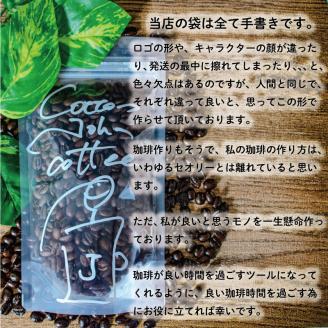 当店の袋は全て手書きです。
ロゴの形や、キャラクターの顔が違った
り、発送の最中に擦れてしまったり、、、と、
色々欠点はあるのですが、人間と同じで、
それぞれ違って良いと、思ってこの形で
作らせて頂いております。
珈琲作りもそうで、私の珈琲の作り方は、
いわゆるセオリーとは離れていると思い
ます。
ただ、私が良いと思うモノを一生懸命作っ
ております。
珈琲が良い時間を過ごすツールになって
くれるように、良い珈琲時間を過ごす為
にお役に立てれば幸いです。
Cotton
John
coffee
J